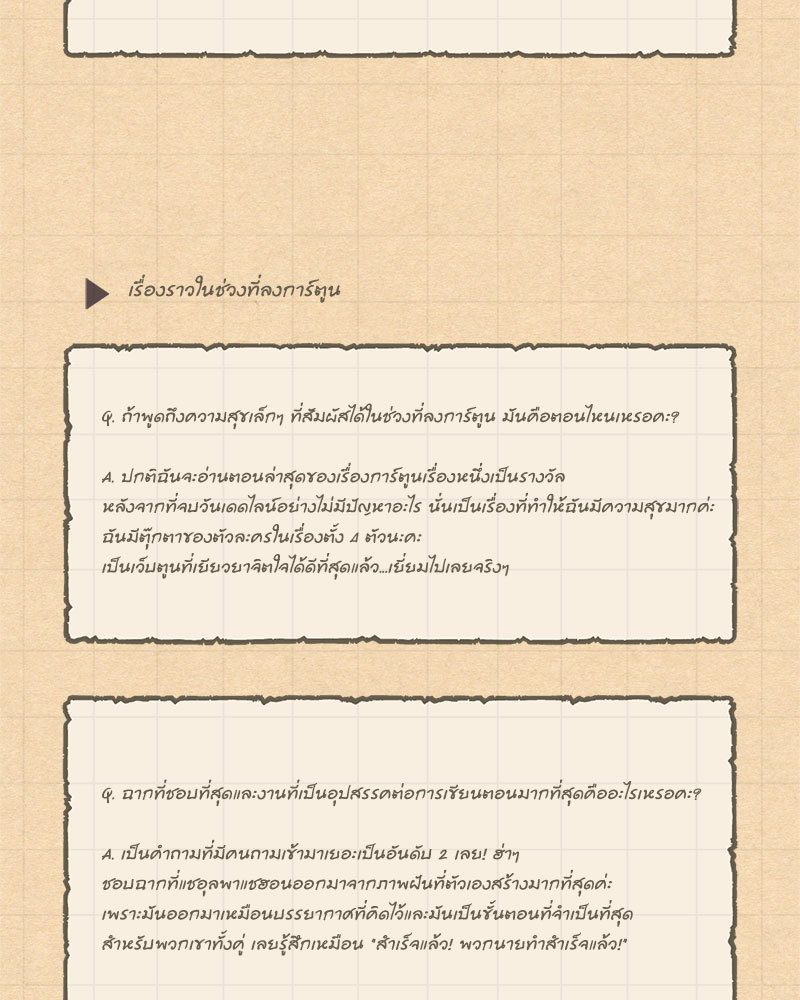 เรื่องราวในช่วงที่ลงการ์ตูน
Q. ถ้าพูดถึงความสุขเล็กๆ ที่สัมผัสได้ในช่วงที่ลงการ์ตูน มันคือตอนไหนเหรอคะ?
A. ปกติฉันจะอ่านตอนล่าสุดของเรื่องการ์ตูนเรื่องหนึ่งเป็นรางวัล
หลังจากที่จบวันเดดไลน์อย่างไม่มีปัญหาอะไร นั่นเป็นเรื่องที่ทำให้ฉันมีความสุขมากค่ะ
ฉันมีตุ๊กตาของตัวละครในเรื่องตั้ง 4 ตัวนะคะ
เป็นเว็บตูนที่เยียวยาจิตใจได้ดีที่สุดแล้ว...เยี่ยมไปเลยจริงๆ
Q. ฉากที่ชอบที่สุดและงานที่เป็นอุปสรรคต่อการเขียนตอนมากที่สุดคืออะไรเหรอคะ?
A. เป็นคำถามที่มีคนถามเข้ามาเยอะเป็นอันดับ 2 เลย! ฮ่าๆ
ชอบฉากที่แชอุลพาแชฮอนออกมาจากภาพฝันที่ตัวเองสร้างมากที่สุดค่ะ
เพราะมันออกมาเหมือนบรรยากาศที่คิดไว้และมันเป็นขั้นตอนที่จำเป็นที่สุด
สำหรับพวกเขาทั้งคู่ เลยรู้สึกเหมือน "สำเร็จแล้ว! พวกนายทำสำเร็จแล้ว!"